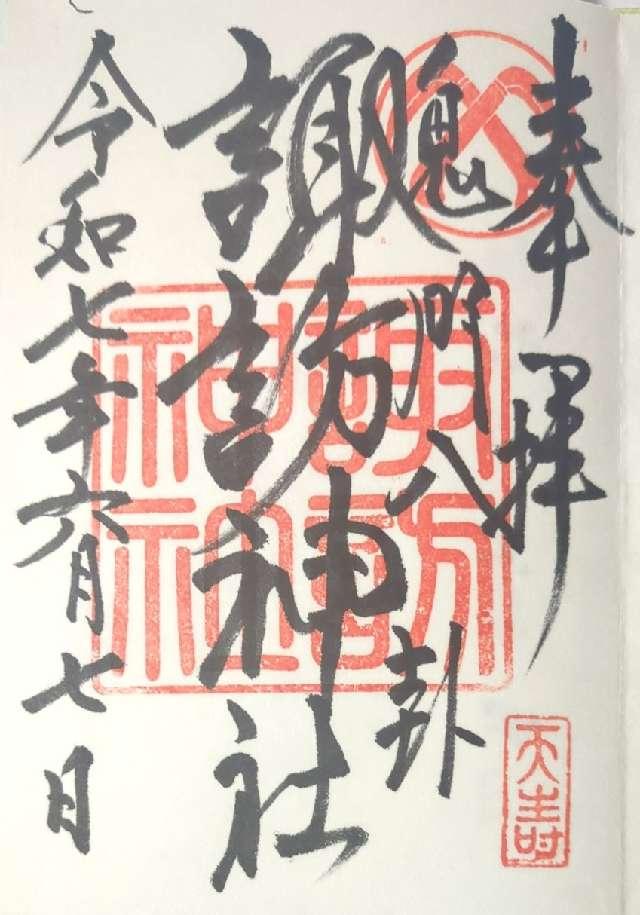 奉拝
鬼門八卦
諏訪神社
令和七年六月七日
諏訪
神社